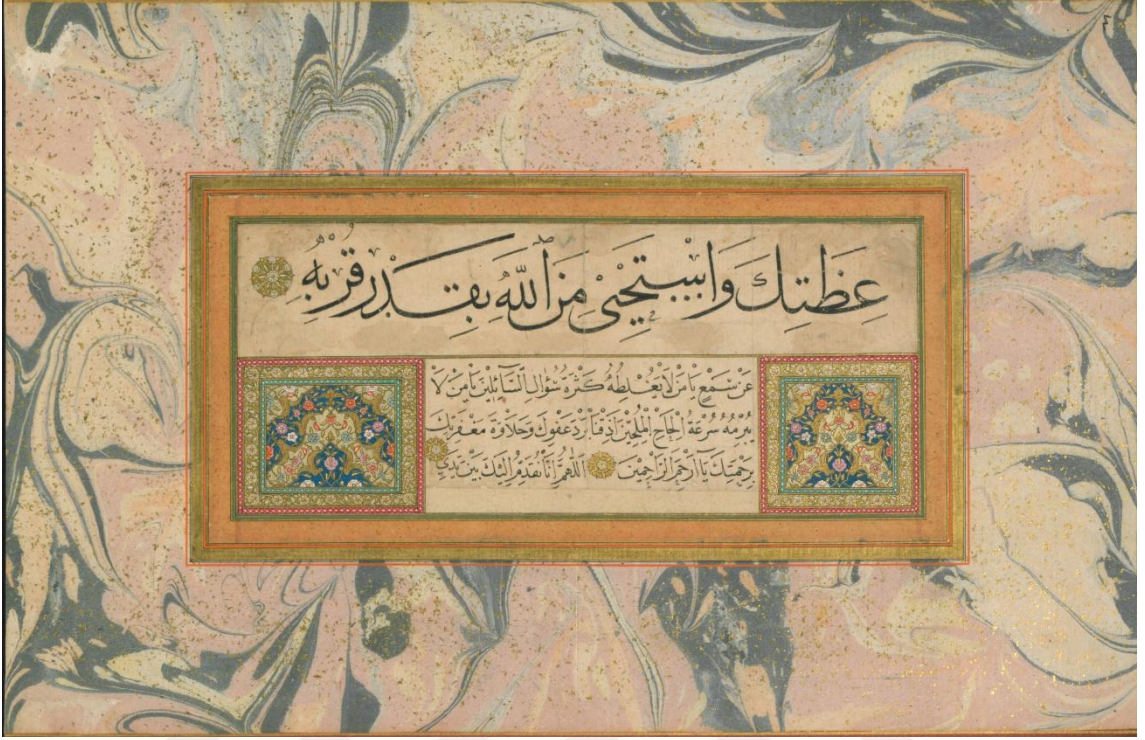 عِظَتِكَ وَاسْتَحْيِىْ مِنَ اللّٰهِ بِقَدَرِ قُرْبِهِ
عَنْ سَمْعٍ يَا مَنْ لَا يُغَلِّطُهُ كَثْرَةُ سُؤَالِ السَّآئِلِينَ يَا مَنْ لَا
يُبْرِمُهُ سُرْعَةُ اِلْحَاحِ الْمُلِحِّينَ اَذِقْنَا بَرْدَ عَفْوِكَ وَحَلَاوَةَ مَغْفِرَتِكَ
بِرَحْمَتِكَ يَآ اَرْحَمَ الرَّاحِمِينَ اَللّٰهُمَّ اِنَّا نُقَدِّمُ اِلَيْكَ بَيْنَ يَدَيْ